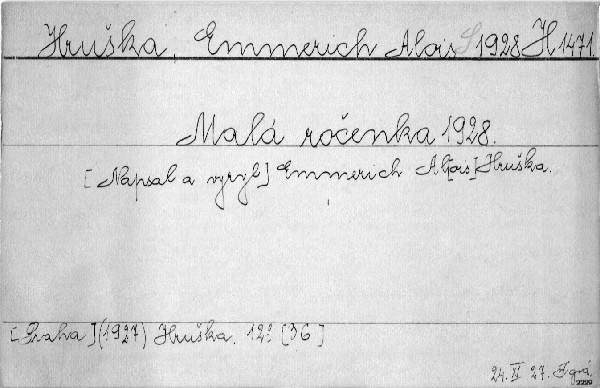 Hruška, Emmerich Alois 1928 H 1471.
Malá ročenka 1928.
[Napsal a vyryl] Emmerich Al[ois] Hruška.
[Praha] (1927) Hruška. 12° [36]
24. II 27.